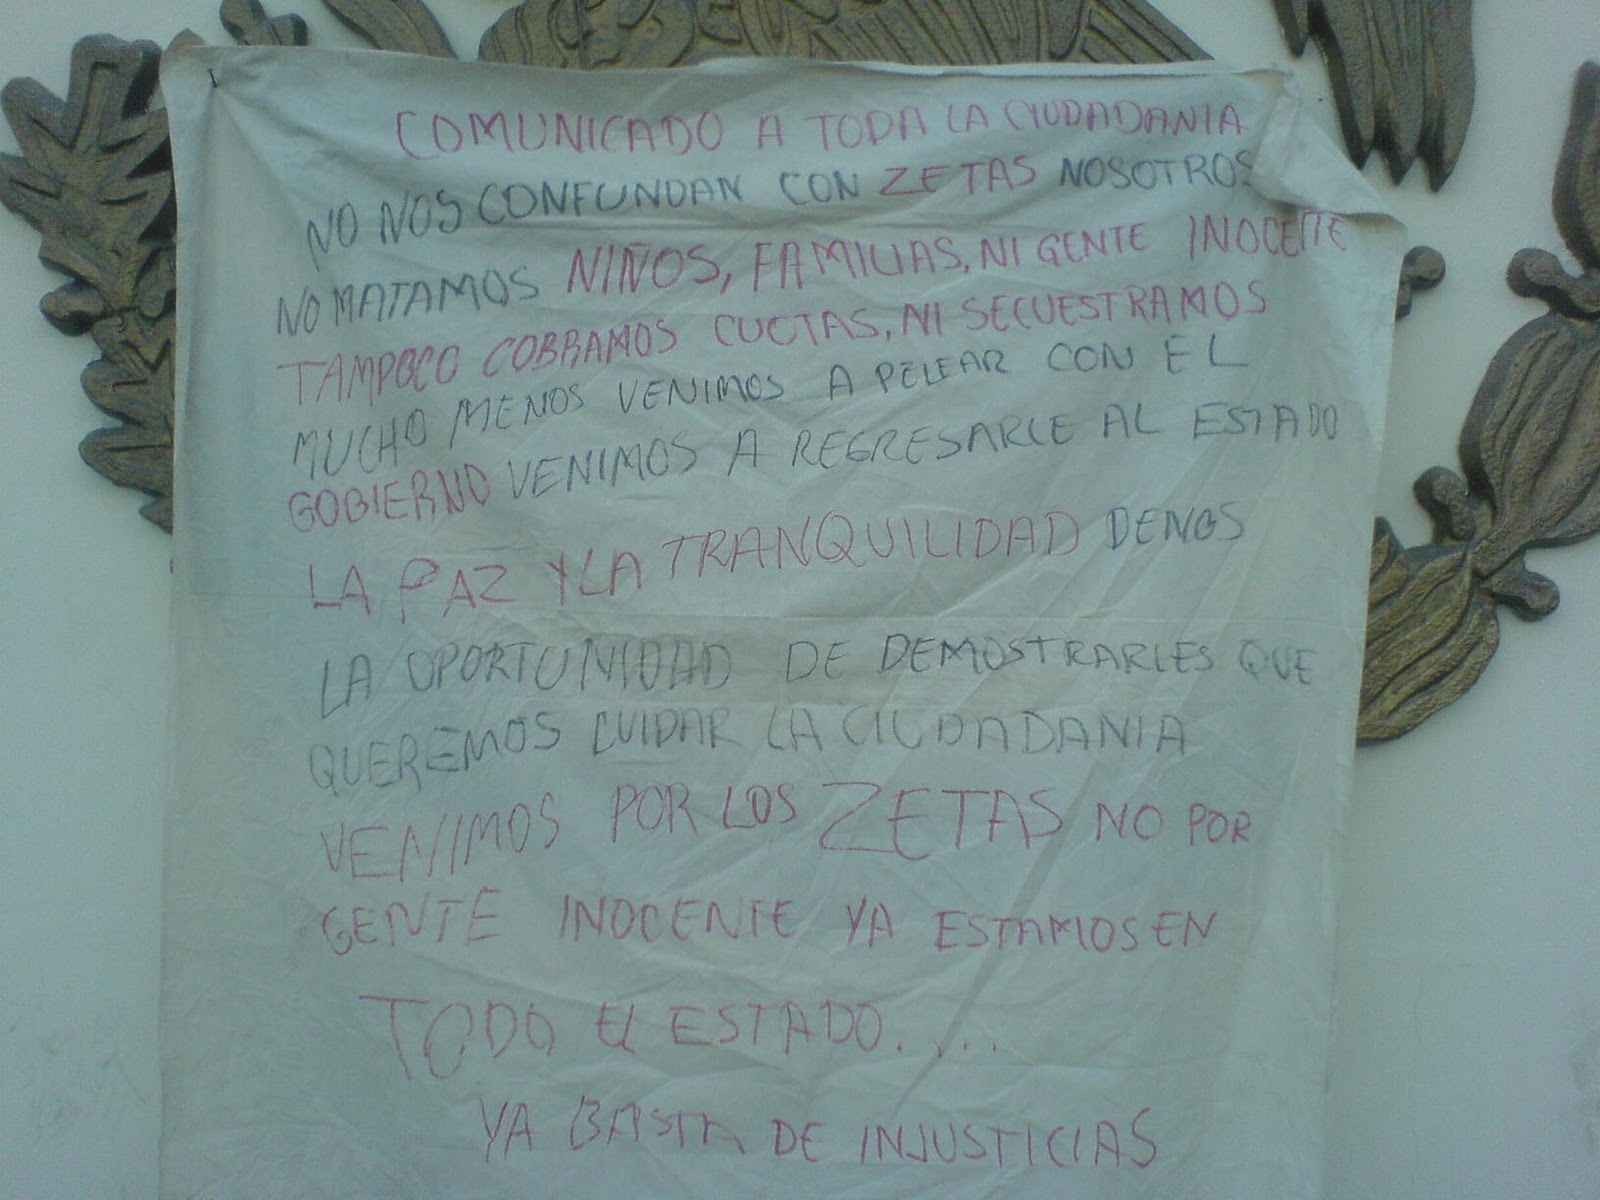 COMUNICADO A TODA LA CIUDADANIA
NO NOS CONFUNDAN CON ZETAS NOSOTROS
NO MATAMOS NIÑOS, FAMILIAS, NI GENTE INOCENTE
TAMPOCO COBRAMOS CUOTAS, NI SECUESTRAMOS
MUCHO MENOS VENIMOS A PELEAR CON EL
GOBIERNO VENIMOS A REGRESARLE AL ESTADO
LA PAZ Y LA TRANQUILIDAD DENOS
LA OPORTUNIDAD DE DEMOSTRARLES QUE
QUEREMOS CUIDAR LA CIUDADANIA
VENIMOS POR LOS ZETAS NO POR
GENTE INOCENTE YA ESTAMOS EN
TODO EL ESTADO....
YA BASTA DE INJUSTICIAS